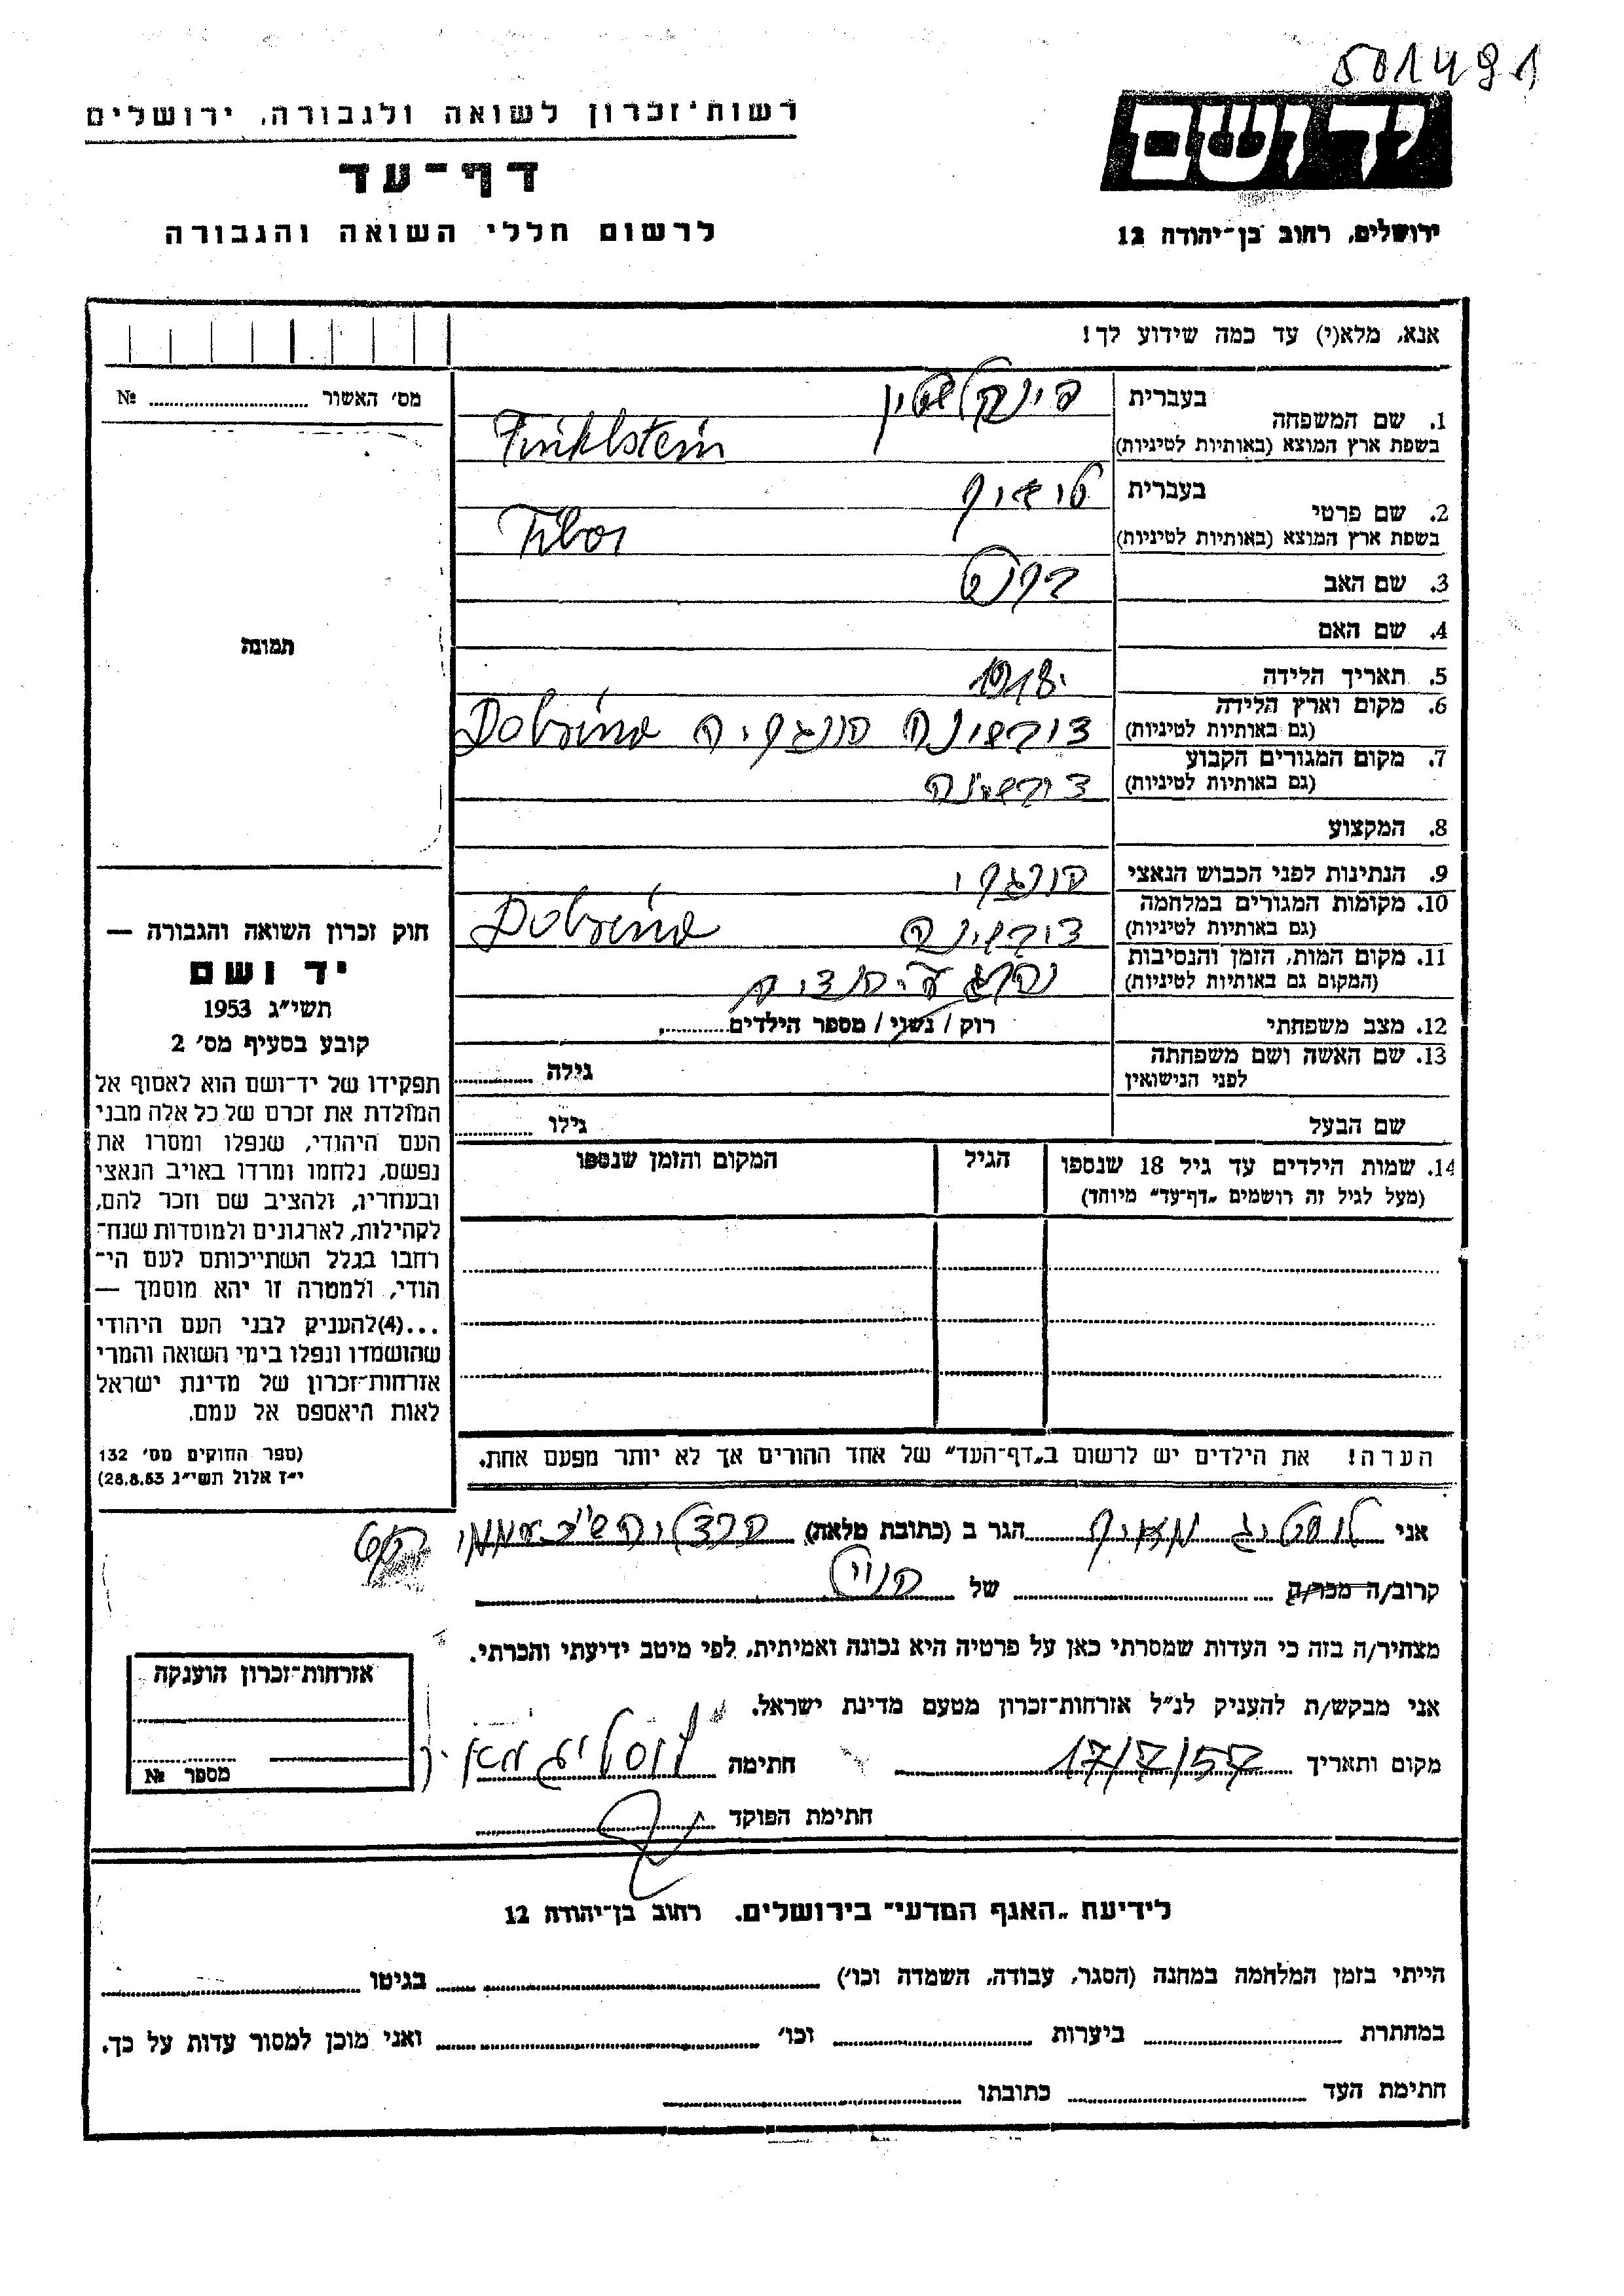 501491
יד ושם
רשות־זכרון לשואה ולגבורה, ירושלים
דף־עד
לרשום חללי השואה והגבורה
ירושלים, רחוב בן־יהודה 12
אנא, מלא(י) עד כמה שידוע לך!
מס׳ האשור №
1. שם המשפחה
בעברית פינקלשטין
בשפת ארץ המוצא (באותיות לטיניות) Finklstein
2. שם פרטי
בעברית טיבור
בשפת ארץ המוצא (באותיות לטיניות) Tibor
3. שם האב
4. שם האם
5. תאריך הלידה 1918
6. מקום וארץ הלידה
(גם באותיות לטיניות) הונגריה Dobsina
7. מקום המגורים הקבוע
(גם באותיות לטיניות)
8. המקצוע
9. הנתינות לפני הכבוש הנאצי הונגרי
10. מקומות המגורים במלחמה
(גם באותיות לטיניות) Dobsina
11. מקום המות, הזמן והנסיבות
(המקום גם באותיות לטיניות) נהרג
12. מצב משפחתי רוק / נשוי / מספר הילדים
13. שם האשה ושם משפחתה
לפני הנישואין גילה
שם הבעל גילו
14. שמות הילדים עד גיל 18 שנספו
(מעל לגיל זה רושמים „דף־עד” מיוחד)
הגיל
המקום והזמן שנספו
תמונה
חוק זכרון השואה והגבורה —
יד ושם
תשי״ג 1953
קובע בסעיף מס׳ 2
תפקידו של יד־ושם הוא לאסוף אל
המולדת את זכרם של כל אלה מבני
העם היהודי, שנפלו ומסרו את
נפשם, נלחמו ומרדו באויב הנאצי
ובעוזריו, ולהציב שם וזכר להם,
לקהילות, לארגונים ולמוסדות שנח־
רחבו בגלל השתייכותם לעם הי־
הודי, ולמטרה זו יהא מוסמך —
...(4)להעניק לבני העם היהודי
שהושמדו ונפלו בימי השואה והמרי
אזרחות־זכרון של מדינת ישראל
לאות היאספם אל עמם.
(ספר החוקים מס׳ 132
י״ז אלול תשי״ג 28.8.53)
הערה! את הילדים יש לרשום ב„דף־העד” של אחד ההורים אך לא יותר מפעם אחת.
אני לוסטיג מאיר הגר ב (כתובת מלאה) הרצליה
קרוב/ה מכר/ה של
מצהיר/ה בזה כי העדות שמסרתי כאן על פרטיה היא נכונה ואמיתית, לפי מיטב ידיעתי והכרתי.
אני מבקש/ת להעניק לנ״ל אזרחות־זכרון מטעם מדינת ישראל.
מקום ותאריך 17/7/57 חתימה לוסטיג מאיר
חתימת הפוקד
אזרחות־זכרון הוענקה
מספר №
לידיעת „האגף המדעי” בירושלים. רחוב בן־יהודה 12
הייתי בזמן המלחמה במחנה (הסגר, עבודה, השמדה וכו׳) בגיטו
במחתרת ביערות וכו׳ ואני מוכן למסור עדות על כך.
חתימת העד כתובתו